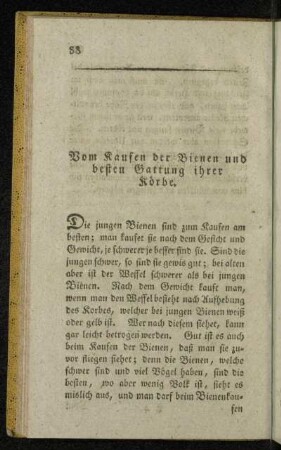 88
Vom Kaufen der Bienen und
besten Gattung ihrer
Körbe.
Die jungen Bienen sind zum Kaufen am
besten; man kaufet sie nach dem Gesicht und
Gewicht, je schwerer je besser sind sie. Sind die
jungen schwer, so sind sie gewis gut; bei alten
aber ist der Wessel schwerer als bei jungen
Bienen. Nach dem Gewicht kaufe man,
wenn man den Wessel besieht nach Aufhebung
des Korbes, welcher bei jungen Bienen weiß
oder gelb ist. Wer nach diesem siehet, kann
gar leicht betrogen werden. Gut ist es auch
beim Kaufen der Bienen, daß man sie zu-
vor fliegen siehet; denn die Bienen, welche
schwer sind und viel Vögel haben, sind die
besten, wo aber wenig Volk ist, sieht es
mislich aus, und man darf beim Bienenkau-
fen